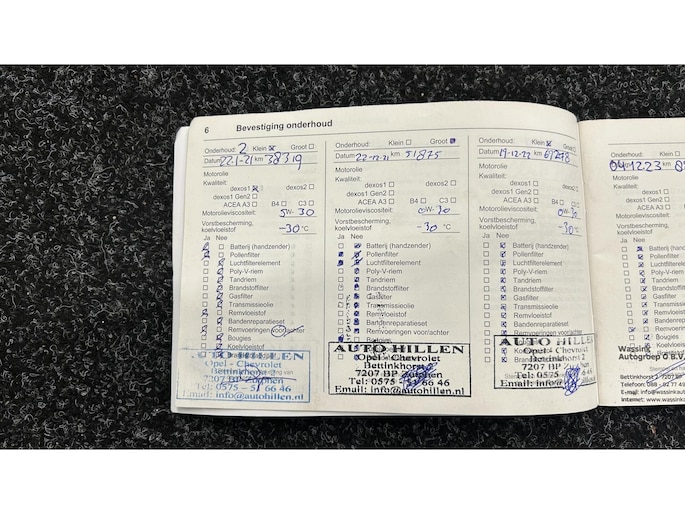 6 Bevestiging onderhoud
Onderhoud: 2 Klein Groot
Datum 22-1-21 km 38319
Motorolie
Kwaliteit:
dexos1 dexos2
dexos1 Gen2
ACEA A3 B4 C3
Motorolieviscositeit: 5W-30
Vorstbescherming,
koelvloeistof -30 °C
Ja Nee
Batterij (handzender)
Pollenfilter
Luchtfilterelement
Poly-V-riem
Tandriem
Brandstoffilter
Gasfilter
Transmissieolie
Remvloeistof
Bandenreparatieset
Remvoeringen voor/achter
Bougies
Koelvloeistof
AUTO HILLEN
Opel - Chevrolet
Bettinkhorst 2
7207 BP Zutphen
Tel: 0575 - 51 66 46
Email: info@autohillen.nl
Onderhoud: Klein Groot
Datum 22-12-21 km 51875
Motorolie
Kwaliteit:
dexos1 dexos2
dexos1 Gen2
ACEA A3 B4 C3
Motorolieviscositeit: 0W-30
Vorstbescherming,
koelvloeistof -30 °C
Ja Nee
Batterij (handzender)
Pollenfilter
Luchtfilterelement
Poly-V-riem
Tandriem
Brandstoffilter
Gasfilter
Transmissieolie
Remvloeistof
Bandenreparatieset
Remvoeringen voor/achter
Bougies
AUTO HILLEN
Opel - Chevrolet
Bettinkhorst 2
7207 BP Zutphen
Tel: 0575 - 51 66 46
Email: info@autohillen.nl
Onderhoud: Klein Groot
Datum 19-12-22 km 61298
Motorolie
Kwaliteit:
dexos1 dexos2
dexos1 Gen2
ACEA A3 B4 C3
Motorolieviscositeit: 0W-30
Vorstbescherming,
koelvloeistof -30 °C
Ja Nee
Batterij (handzender)
Pollenfilter
Luchtfilterelement
Poly-V-riem
Tandriem
Brandstoffilter
Gasfilter
Transmissieolie
Remvloeistof
Bandenreparatieset
Remvoeringen voor/achter
AUTO HILLEN
Opel - Chevrolet
Bettinkhorst
7207 BP
Tel: 0575
Email: info@
Onderhoud: Klein
04-12-23 km
Motorolie
Kwaliteit:
dexos1
dexos1 Gen2
ACEA A3
Motorolieviscositeit:
Vorstbescherming,
koelvloeistof
Ja Nee
Batterij (handz
Pollenfilter
Luchtfiltere
Poly-V-rie
Tandriem
Brandsto
Gasfilter
Transmis
Remvloe
Bandenr
Remvoe
Wassink
Autogroep O B.V.
Bettinkhorst 2
Telefoon: 088 -
E-mail: info@wassink
Internet: www.wassink